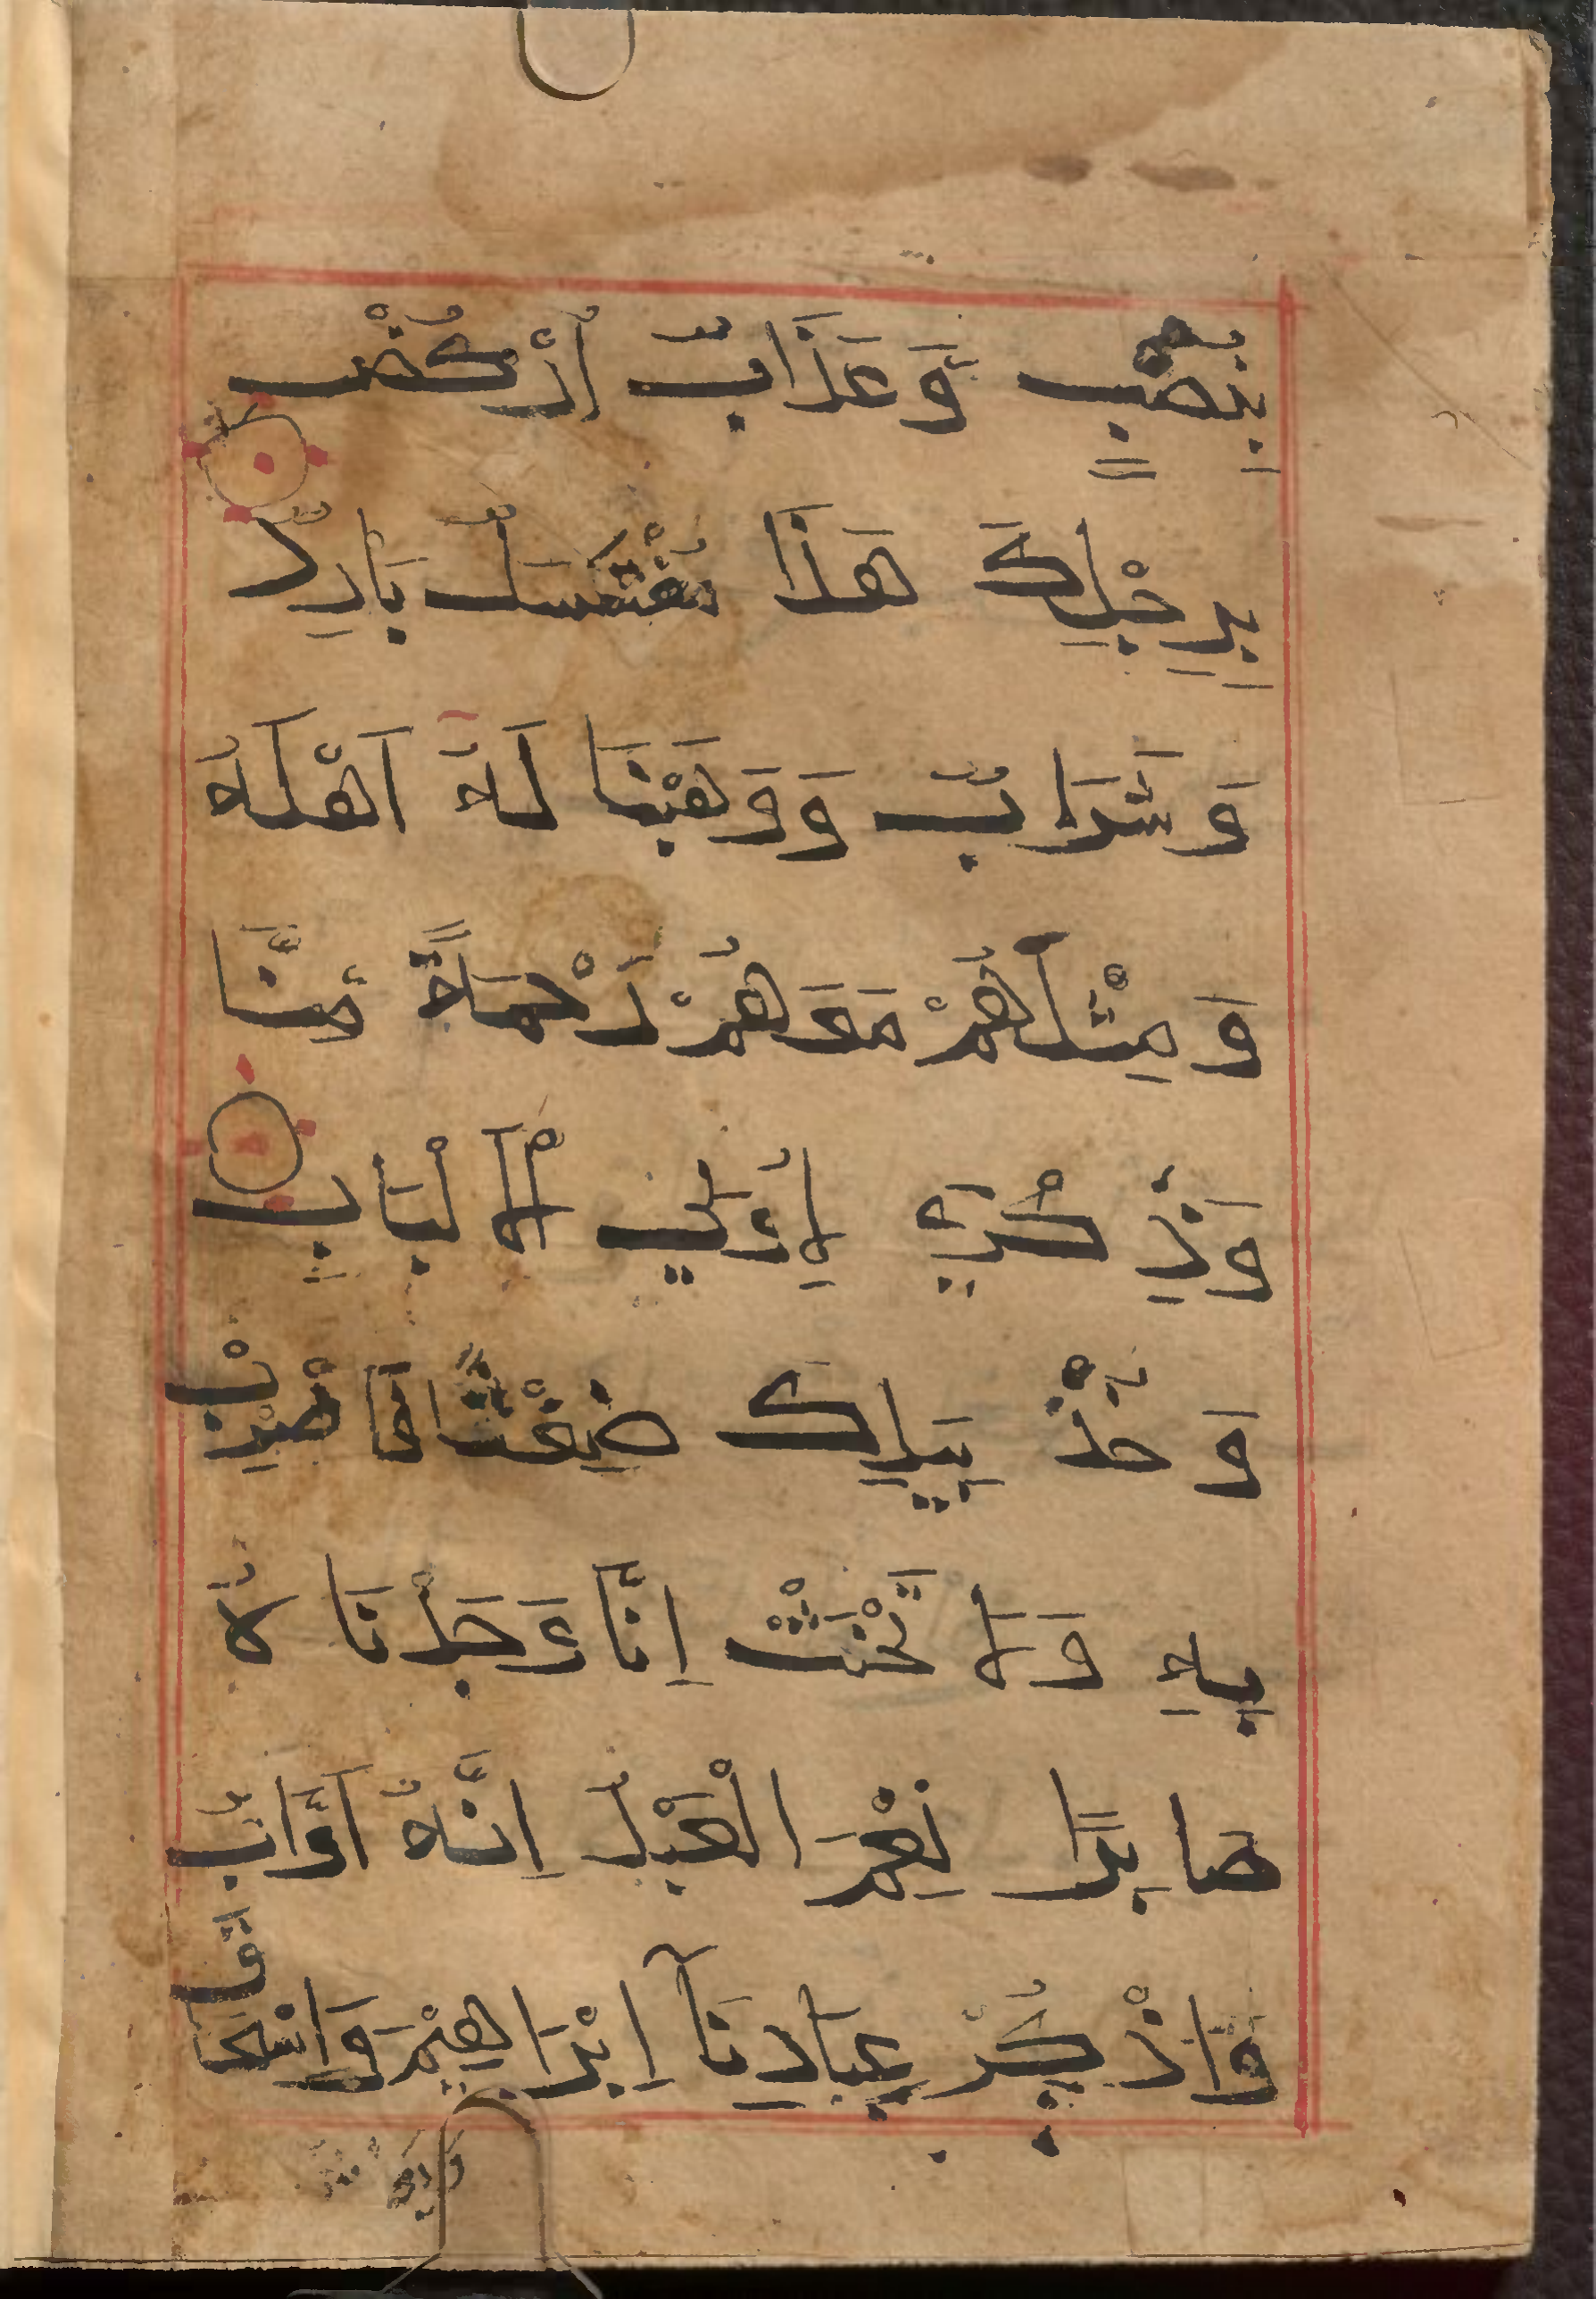 بِنُصْبٍ وَّعَذَابٌ اُرْكُضْ
بِرِجْلِكَ هَذَا مُغْتَسَلٌ بَارِدٌ
وَشَرَابٌ وَوَهَبْنَا لَهُ اَهْلَهُ
وَمِثْلَهُمْ مَعَهُمْ رَحْمَةً مِّنَّا
وَذِكْرَى لِاُولِي الْاَلْبَابِ
وَخُذْ بِيَدِكَ ضِغْثًا فَاضْرِبْ
بِهِ وَلَا تَحْنَثْ اِنَّا وَجَدْنَاهُ
صَابِرًا نِعْمَ الْعَبْدُ اِنَّهُ اَوَّابٌ
وَاذْكُرْ عِبَادَنَا اِبْرَاهِيْمَ وَاِسْحَاقَ